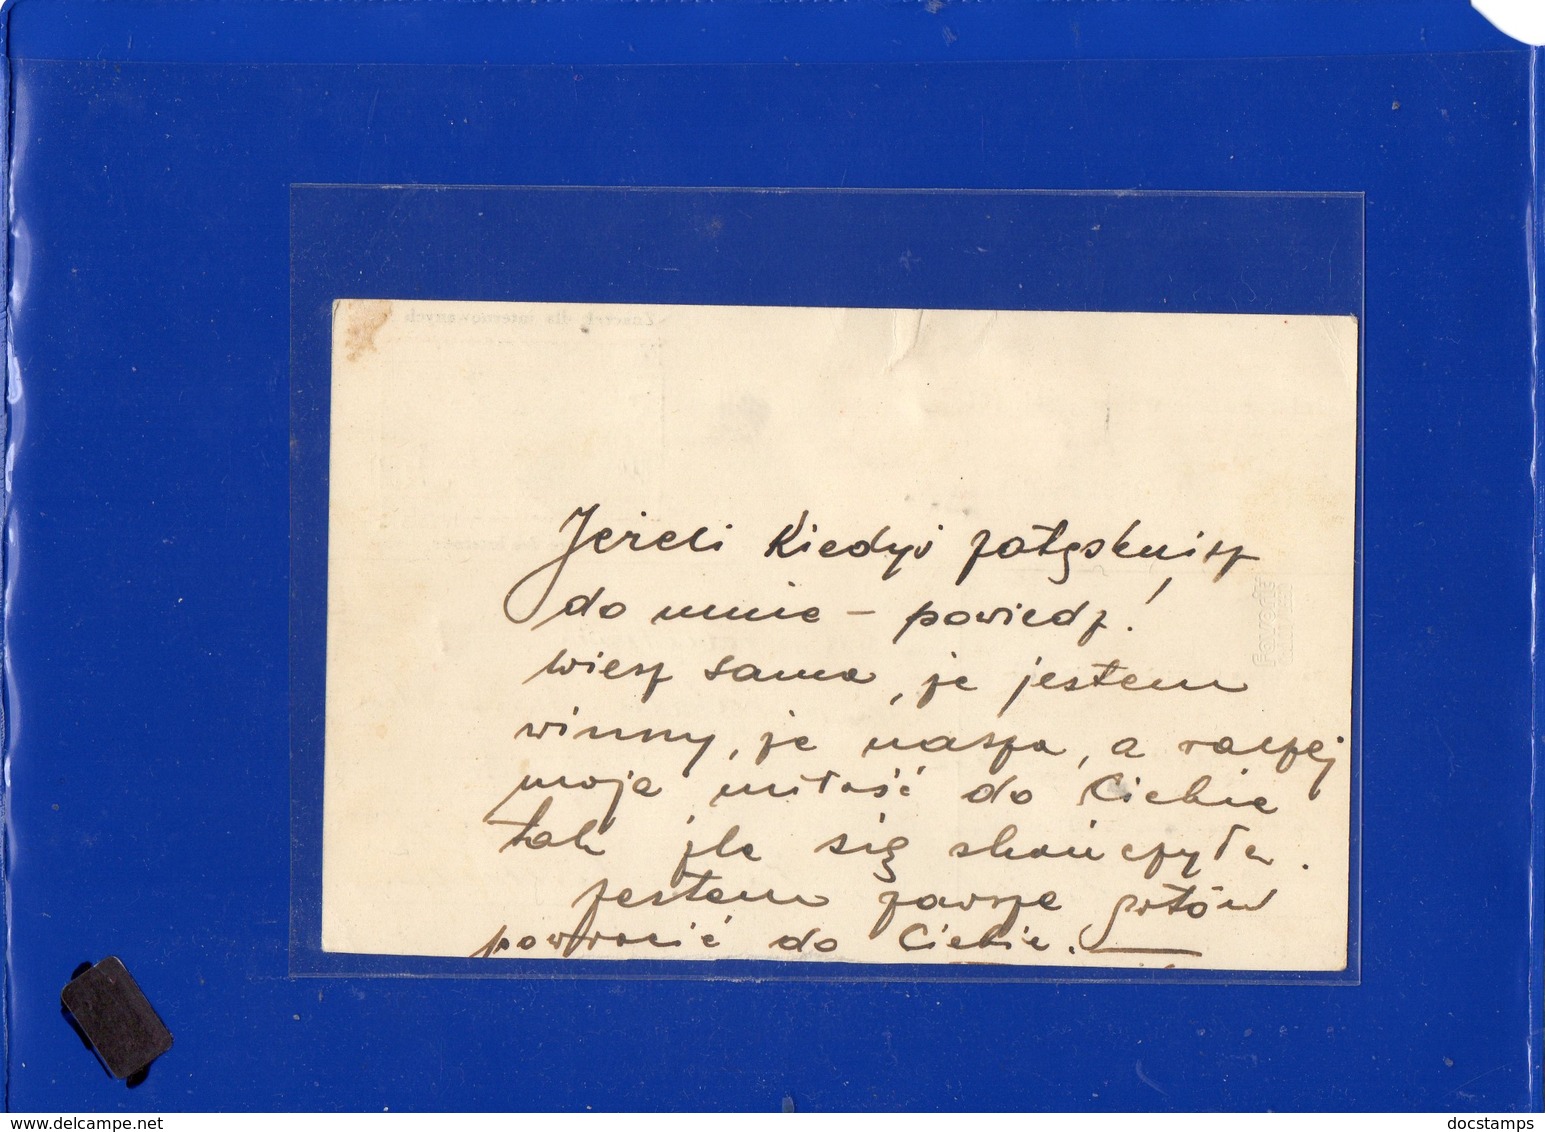 Jeżeli kiedyś zatęsknisz
do mnie – powiedz!
wiesz sama, że jestem
winny, że nasza, a raczej
moja miłość do Ciebie
tak źle się skończyła.
Jestem zawsze gotów
powrócić do Ciebie.
www.delcampe.net
docstamps